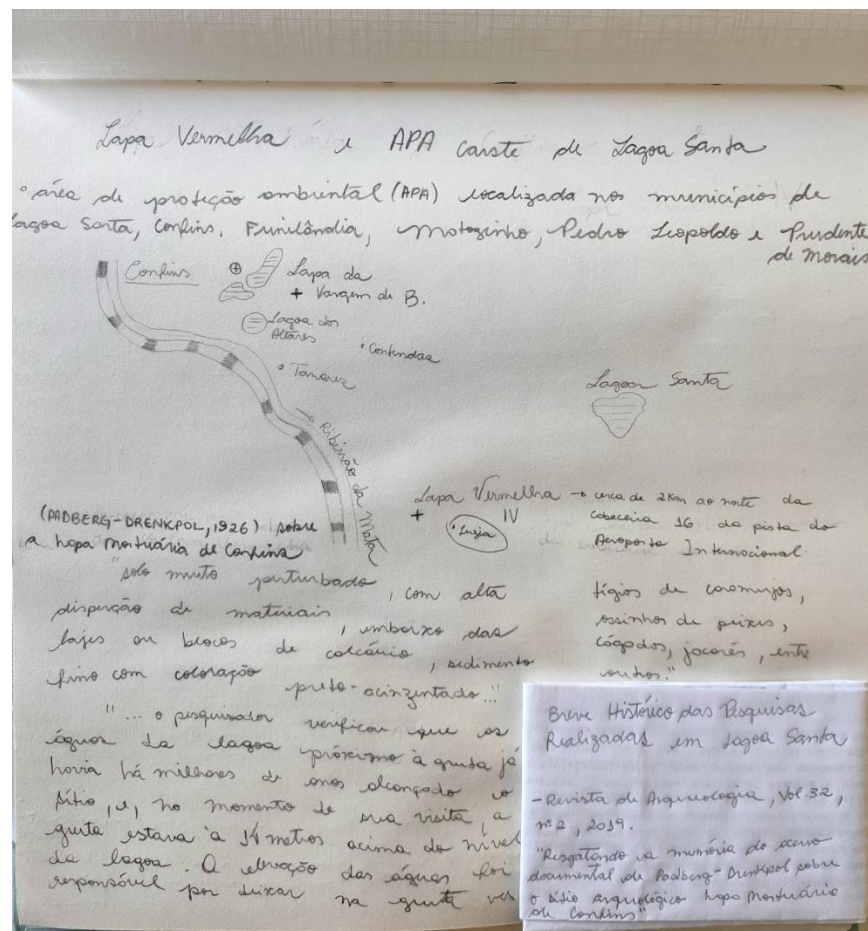 Lapa Vermelha e APA Carste de Lagoa Santa
° área de proteção ambiental (APA) localizada nos municípios de
Lagoa Santa, Confins, Funilândia, Matozinho, Pedro Leopoldo e Prudente
de Morais
Confins
Lapa da
+ Vargem de B.
Lagoa dos
Altares
• Contendas
• Tamarez
→ Ribeirão da Mata
Lagoa Santa
Lapa Vermelha
+ IV
• Luzia
→ cerca de 2km ao norte da
cabeceira 16 da pista do
Aeroporto Internacional
(PADBERG-DRENKPOL, 1926) sobre
a hapa Mortuária de Confins
"solo muito perturbado, com alta
disperção de materiais, embaixo das
lajes ou blocos de calcário, sedimento
fino com coloração preto-acinzentado..."
"... o pesquisador verificou que as
águas da lagoa próximo à gruta já
havia há milhares de anos alcançado o
sítio, e, no momento de sua visita, a
gruta estava à 14 metros acima do nível
da lagoa. A elevação das águas foi
responsável por deixar na gruta ves
tígios de caramujos,
ossinhos de peixes,
cágados, jacarés, entre
outros."
Breve Histórico das Pesquisas
Realizadas em Lagoa Santa
- Revista de Arqueologia, Vol. 32,
nº 2, 2019.
"Resgatando a memória do acervo
documental de Padberg-Drenkpol sobre
o sítio arqueológico hapa Mortuária
de Confins"